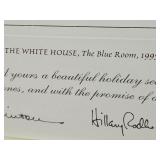 THE WHITE HOUSE, The Blue Room, 199
d yours a beautiful holiday sea
nes, and with the promise of
Hillary Rodh